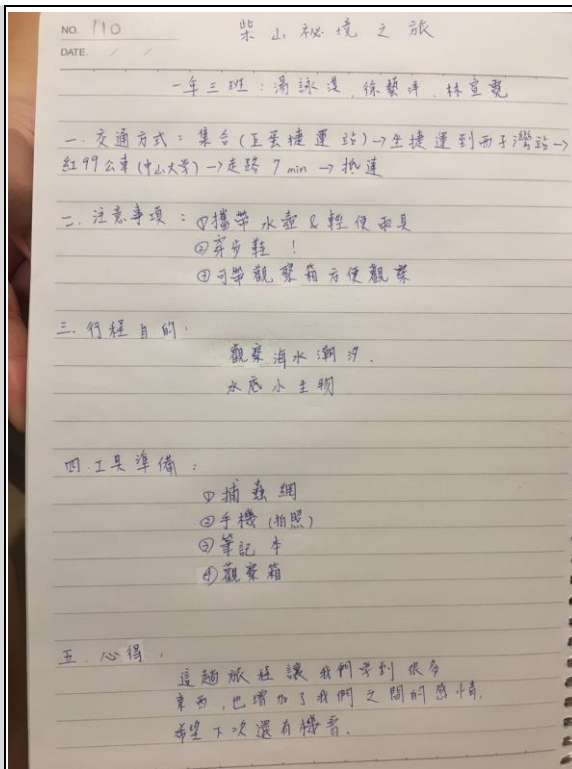 NO. 110
柴山祕境之旅
DATE. / /
一年三班：湯詠淇、徐藝洋、林宣霓
一. 交通方式：集合(巨蛋捷運站)→坐捷運到西子灣站→
紅99公車(中山大學)→走路7min→抵達
二. 注意事項：①攜帶水壺&輕便雨具
②穿步鞋！
③可帶觀察箱方便觀察
三. 行程目的：
觀察海水潮汐.
水底小生物
四.工具準備：
①捕蟲網
②手機(拍照)
③筆記本
④觀察箱
五. 心得：
這趟旅程讓我們學到很多
東西,也增加了我們之間的感情.
希望下次還有機會.